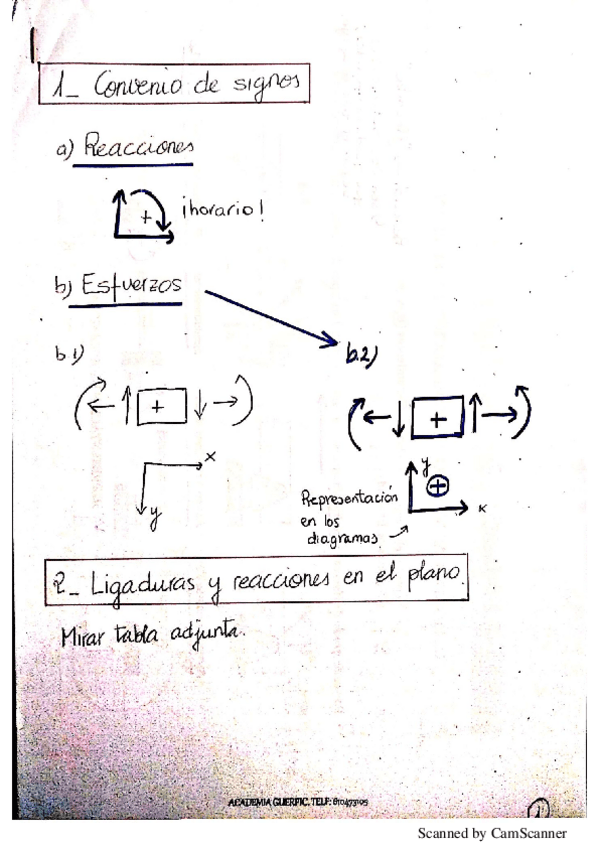 1_ Convenio de signos
a) Reacciones
+ ¡horario!
b) Esfuerzos
b.1)
b.2)
+
+
x
y
y
+
x
Representación
en los
diagramas.
2_ Ligaduras y reacciones en el plano.
Mirar tabla adjunta.
ACADEMIA GUERPIC. TELF: 610473105
1
Scanned by CamScanner